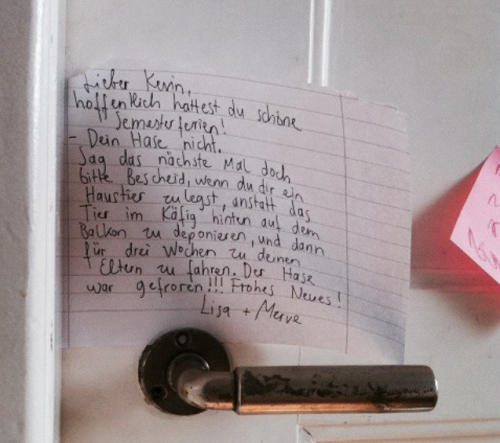 Lieber Kevin,
hoffentlich hattest du schöne
Semesterferien!
- Dein Hase nicht.
Sag das nächste Mal doch
bitte Bescheid, wenn du dir ein
Haustier zulegst, anstatt das
Tier im Käfig hinten auf dem
Balkon zu deponieren, und dann
für drei Wochen zu deinen
Eltern zu fahren. Der Hase
war gefroren!!! Frohes Neues!
Lisa + Merve